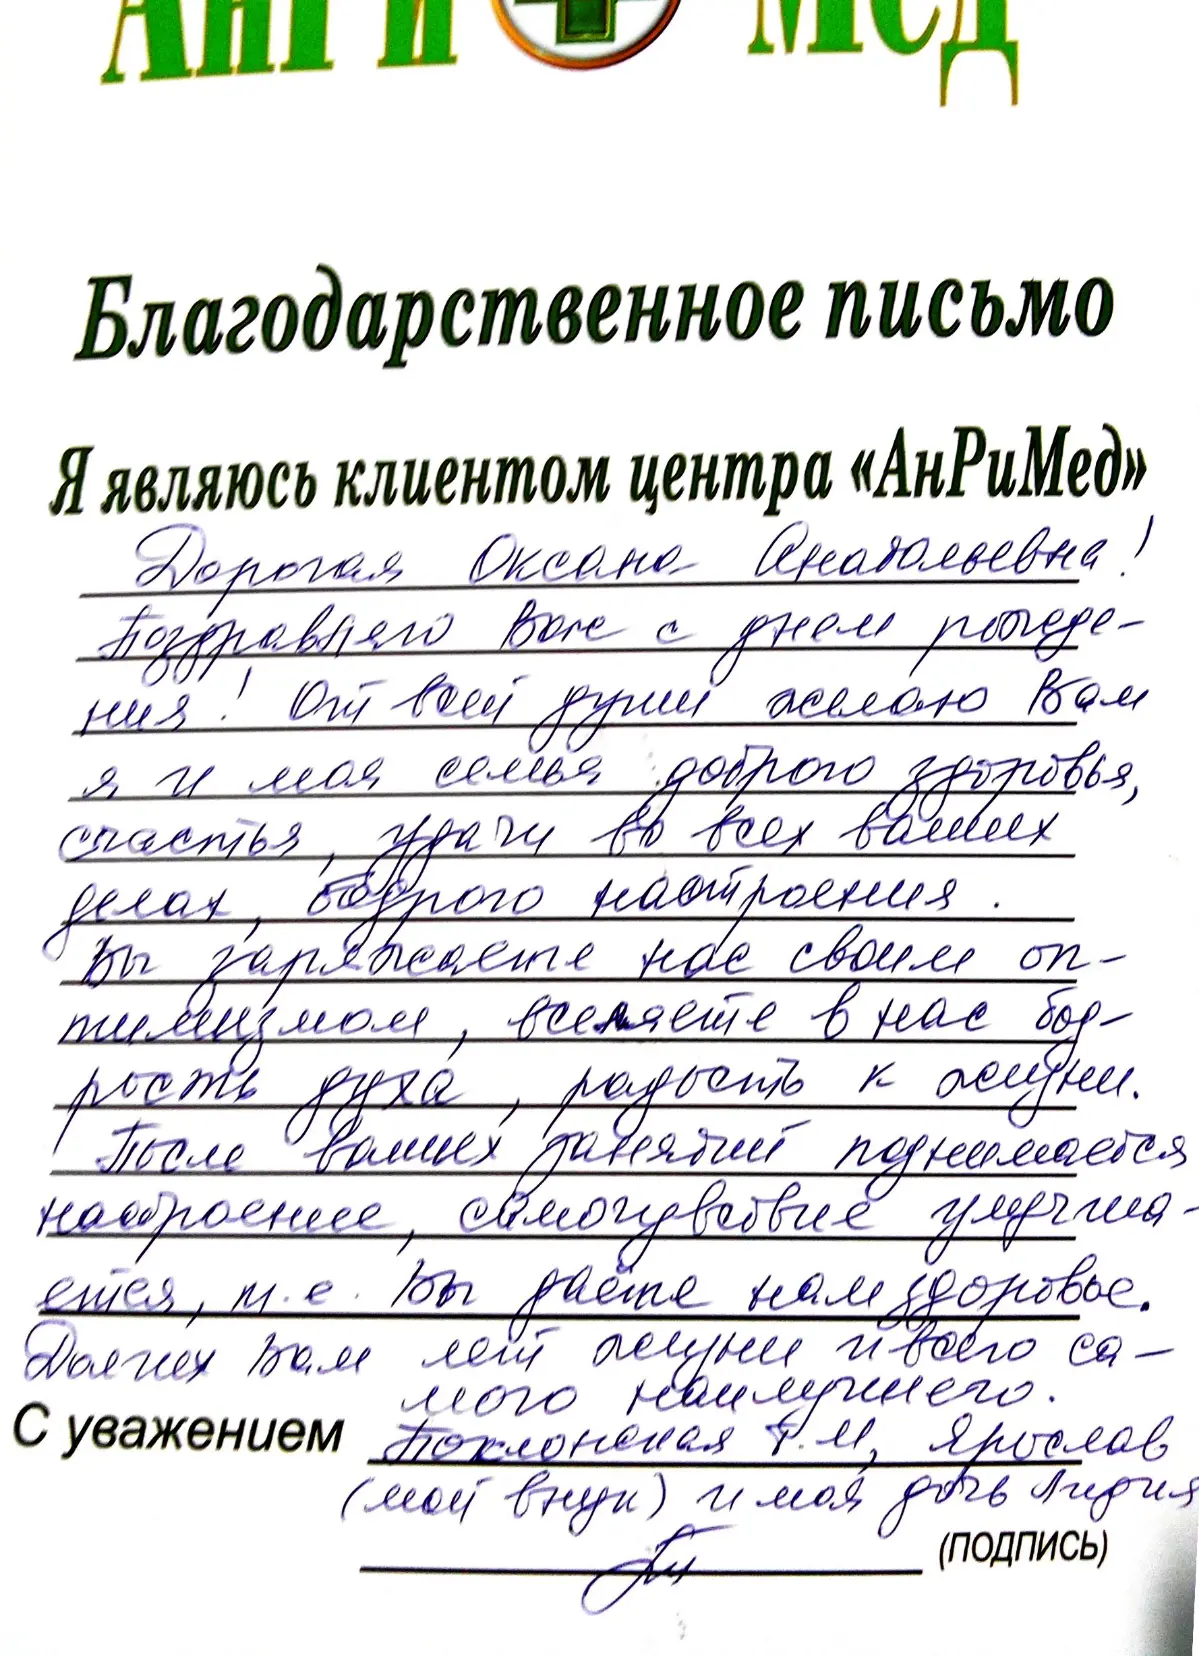 АнРи Мед
Благодарственное письмо
Я являюсь клиентом центра «АнРиМед»
Дорогая Оксана Анатольевна!
Поздравляю Вас с днем рожде-
ния! От всей души желаю Вам
я и моя семья доброго здоровья,
счастья, удачи во всех ваших
делах, бодрого настроения.
Вы заряжаете нас своим оп-
тимизмом, вселяете в нас бод-
рость духа, радость к жизни.
После ваших занятий поднимается
настроение, самочувствие улучша-
ется, т.е. Вы даёте нам здоровье.
Долгих Вам лет жизни и всего са-
мого наилучшего.
С уважением Поклонская Т.И, Ярослав
(мой внук) и моя дочь Лидия
(ПОДПИСЬ)